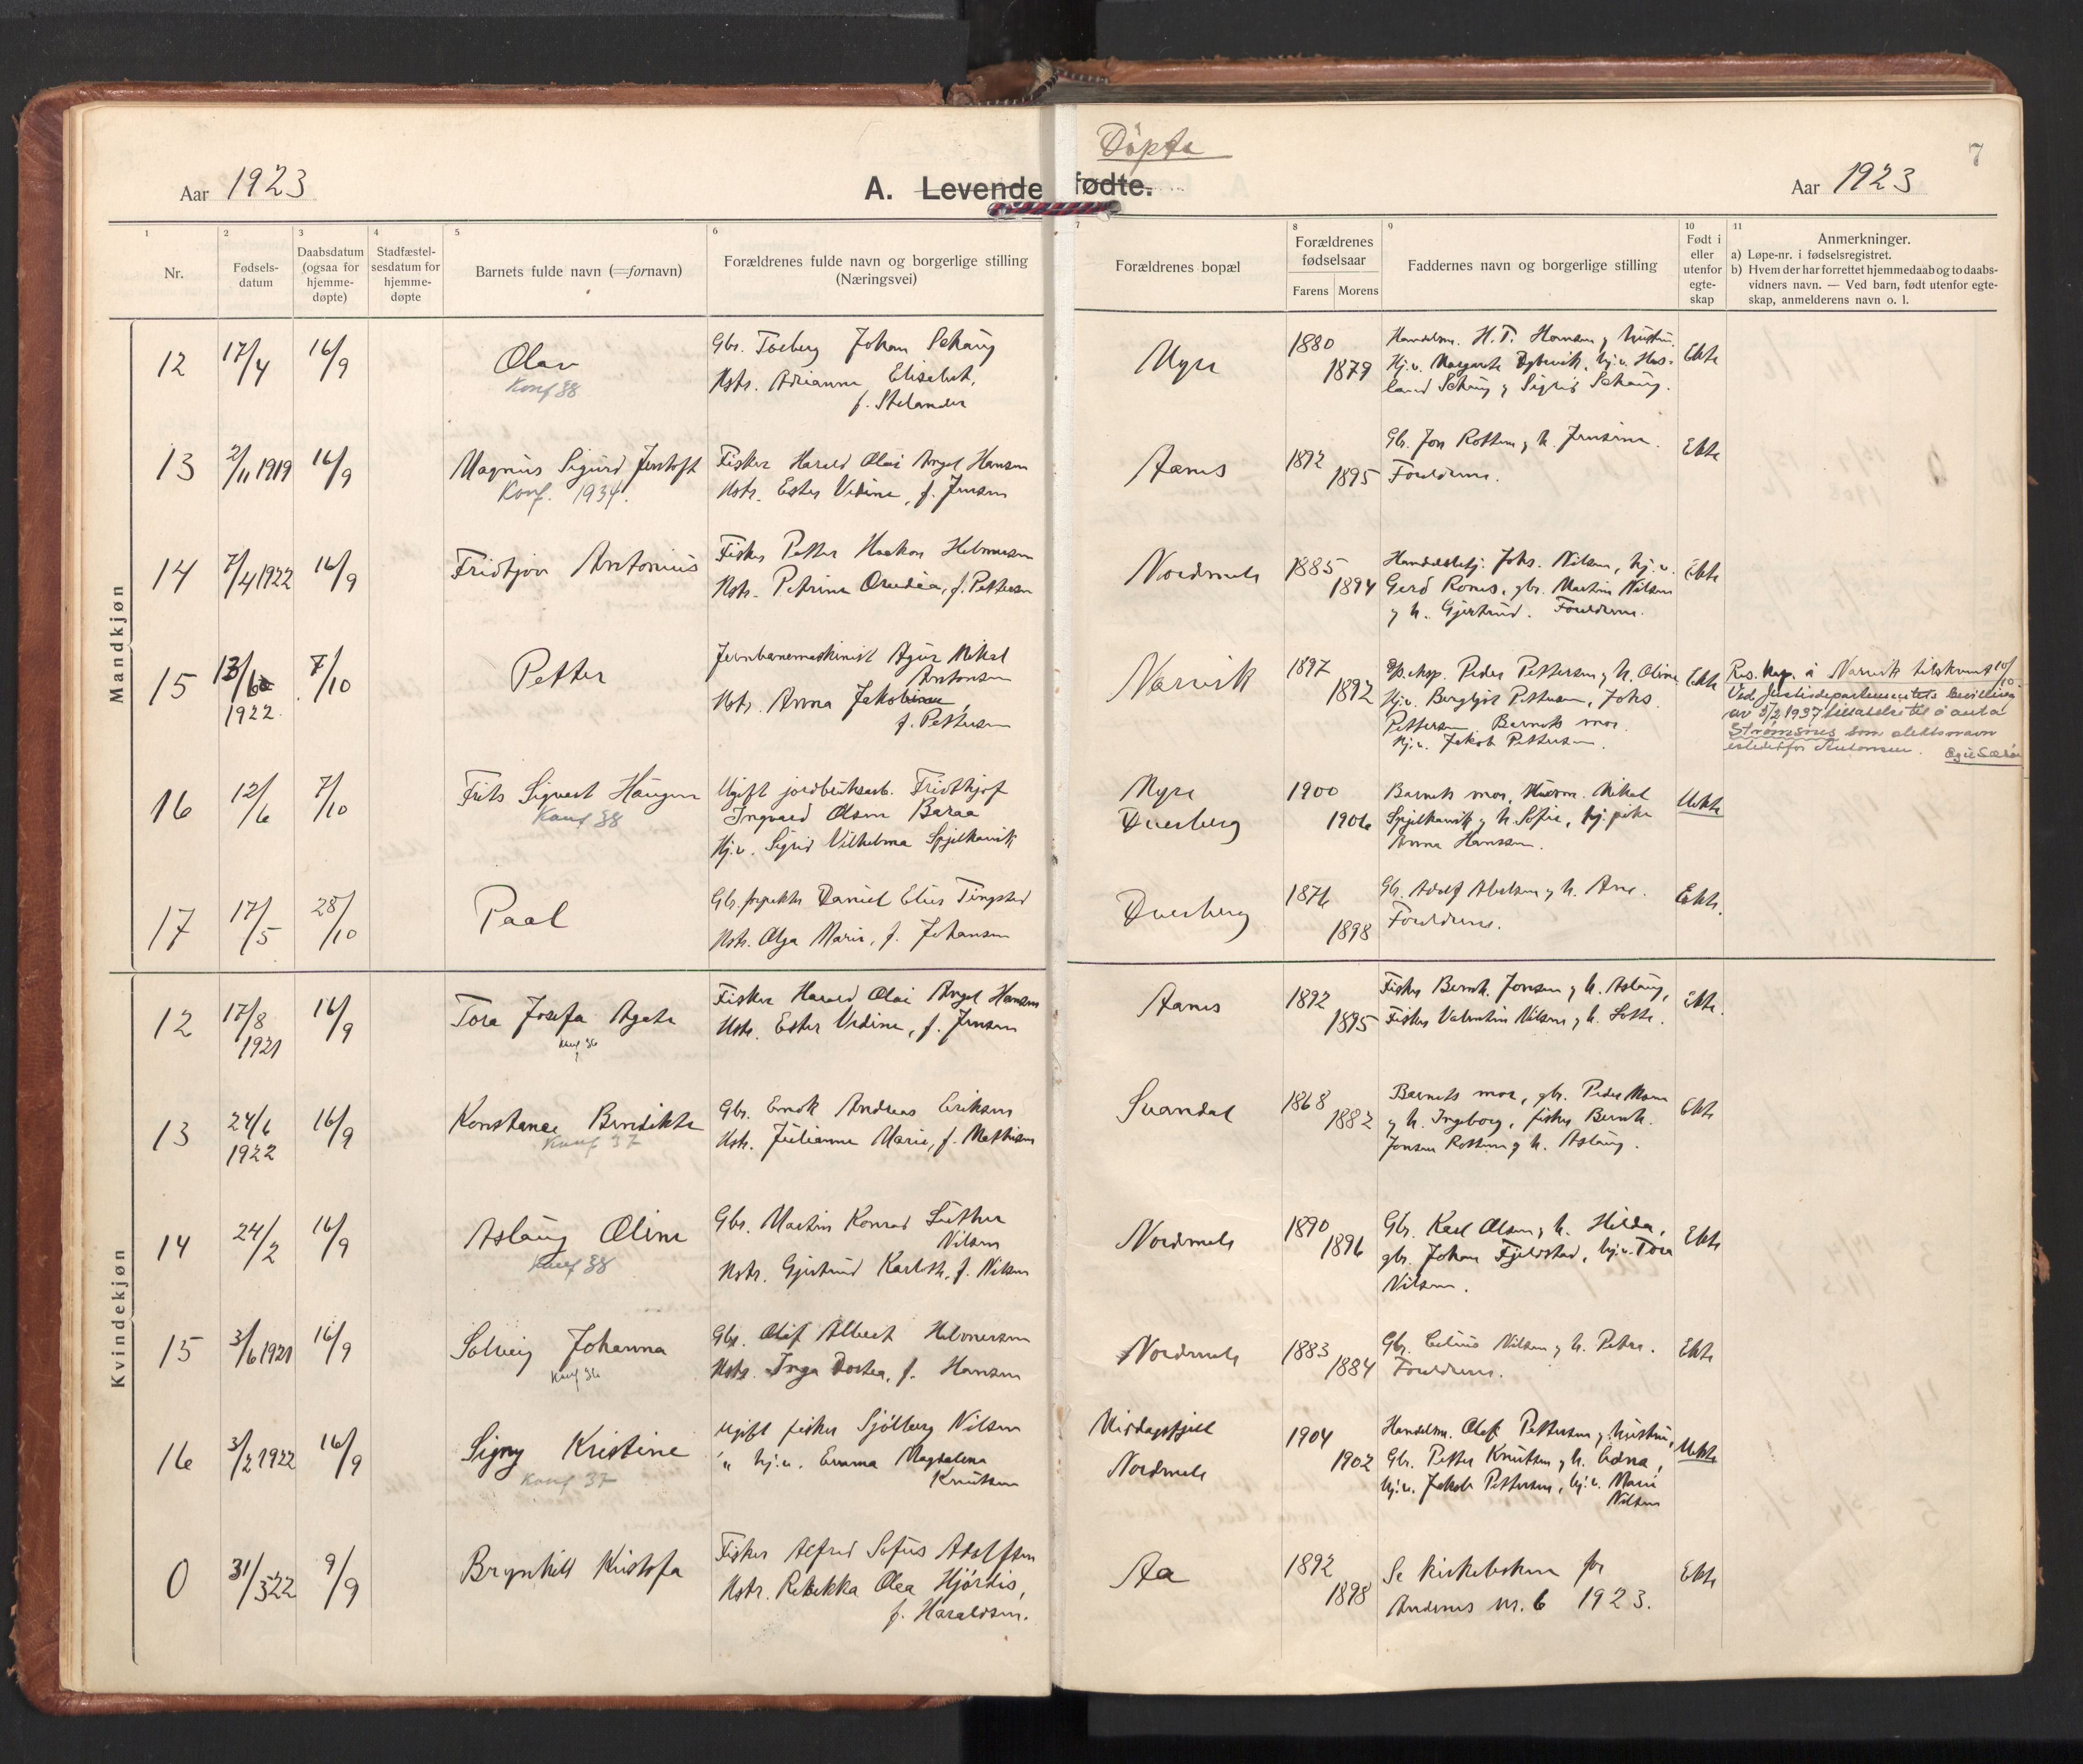 Døpte
7
Aar 1923
A. Levende fødte.
Aar 1923
1 2 3 4 5 6 7 8 9 10 11
Nr.
Fødsels-
datum
Daabsdatum
(ogsaa for
hjemme-
døpte)
Stadfæstel-
sesdatum for
hjemme-
døpte
Barnets fulde navn (=fornavn)
Forældrenes fulde navn og borgerlige stilling
(Næringsvei)
Forældrenes bopæl
Forældrenes
fødselsaar
Farens Morens
Faddernes navn og borgerlige stilling
Født i
eller
utenfor
egte-
skap
Anmerkninger.
a) Løpe-nr. i fødselsregistret.
b) Hvem der har forrettet hjemmedaab og to daabs-
vidners navn. — Ved barn, født utenfor egte-
skap, anmelderens navn o. l.
Mandkjøn
12 17/4 16/9
Olav
Konf 38
Gbr. Johan Schaug
Hstr. Adrianna Elisabet,
f. Stelander
Myre
1880
1879
Handelsm. H. T.
Hj.v. Margarete
Schaug & Sigrid Schaug.
Ekte
13 2/11 1919 16/9
Magnus Sigurd Jentoft
Konf. 1934.
Fisker Harald Olai Angel Hansen
Hstr. Ester Vedine, f. Jensen
Aanes
1892
1895
Gbr. Jon Rottum & h. Jensine.
Forældrene.
Ekte
14 7/4 1922 16/9
Fridtjov Antonius
Fisker Petter Haakon Helmersen
Hstr. Petrine f. Pettersen
Nordmela
1885
1894
Johs. Nilsen, hj.v.
Gerd Rones, gbr. Martin Nilsen
& h. Gjertrud. Forældrene.
Ekte
15 13/6 1922 7/10
Petter
Jernbanemaskinist Agur Mikal
Antonsen
Hstr. Anna Jakobine,
f. Pettersen
Narvik
1897
1892
Peder Pettersen & h. Oline
Hj.v. Bergljot Pettersen, Johs.
Pettersen Barnets mor.
Hj.v. Jakob Pettersen.
Ekte
Res. kap. i Narvik tilskrevet 10/10
Ved Justisdepartementets bevilling
av 3/2 1937 tillatelse til å anta
Strømsnes som slektsnavn
istedetfor Antonsen.
16 12/6 7/10
Frits Sigvart Haugen
Konf 38
Ugift jordbruksarb. Fridthjof
Ingvard Olsen Baraa
Hj.v. Sigrid Vilhelma Spjelkavik
Myre
Dverberg
1900
1906
Barnets mor, Mikal
Spjelkavik & h. Sofie, hj. pike
Anna Hanssen.
Uekte
17 17/5 28/10
Paal
Gbr. forpakter Daniel Elius Tingstad
Hstr. Olga Marie, f. Johansen
Dverberg
1876
1898
Gbr. Adolf Abelsen & h. Ane.
Forældrene.
Ekte.
Kvindekjøn
12 17/8 1921 16/9
Tora Josefa Agate
Konf 36
Fisker Harald Olai Angel Hansen
Hstr. Ester Vedine, f. Jensen
Aanes
1892
1895
Fisker Bernh. Jonsen & h. Aslaug,
Fisker Valentin Nilsen & h. Lotte.
Ekte.
13 24/6 1922 16/9
Konstance Bendikte
Konf 37
Gbr. Enok Andreas Eriksen
Hstr. Julianne Marie, f. Mathisen
Svandal
1868
1882
Barnets mor, gbr. Peder
& h. Ingeborg, fisker Bernh.
Jonsen Rottum & h. Aslaug.
Ekte
14 24/2 16/9
Aslaug Oline
Konf 38
Gbr. Martin Konrad Luther
Nilsen
Hstr. Gjertrud f. Nilsen
Nordmela
1890
1896
Gbr. Karl Olsen & h. Hilda,
gbr. Johan Fjeldstad, hj.v. Tora
Nilsen.
Ekte
15 3/6 1921 16/9
Solveig Johanna
Konf 36
Gbr. Olif Albert Helmersen
Hstr. Inga Dortea, f. Hansen
Nordmela
1883
1884
Gbr. Nilsen & h. Petra.
Forældrene.
Ekte
16 3/2 1922 16/9
Signy Kristine
Konf 37
Ugift fisker Sjølberg Nilsen
" hj.v. Emma Magdalena
Knutsen
Nordmela
1904
1902
Handelsm. Olaf Pettersen & hustru,
Gbr. Petter Knutsen & h. Edna,
hj.v. Jakob Pettersen, hj.v. Marie
Nilsen
Uekte
0 31/3 22 9/9
Brynhild Kristofa
Fisker Alfred Sofus Adolfsen
Hstr. Rebekka Olea Hjørdis,
f. Haraldsen.
Aa
1892
1898
Se kirkeboken for
Andenes nr. 6 1923.
Ekte